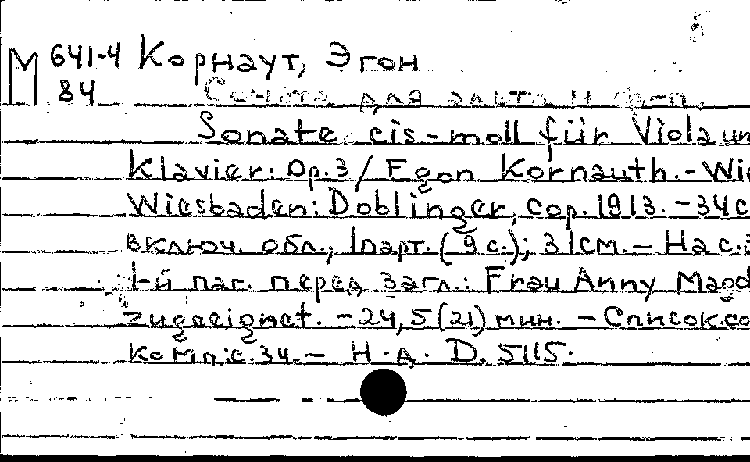 M 641-4 Корнаут, Эгон
84 Соната для альта и ф-п.
Sonate cis-moll für Viola un
Klavier: Op. 3 / Egon Kornauth. - Wie
Wiesbaden: Doblinger, cop. 1913. - 34 с
включ. обл., 1 парт. (9 с.); 31 см. - На с. 3
1-й паг. перед загл.: Frau Anny Magd
zugeeignet. - 24,5 (21) мин. - Список со
комп: с. 34. - Н. д. D. 5115.